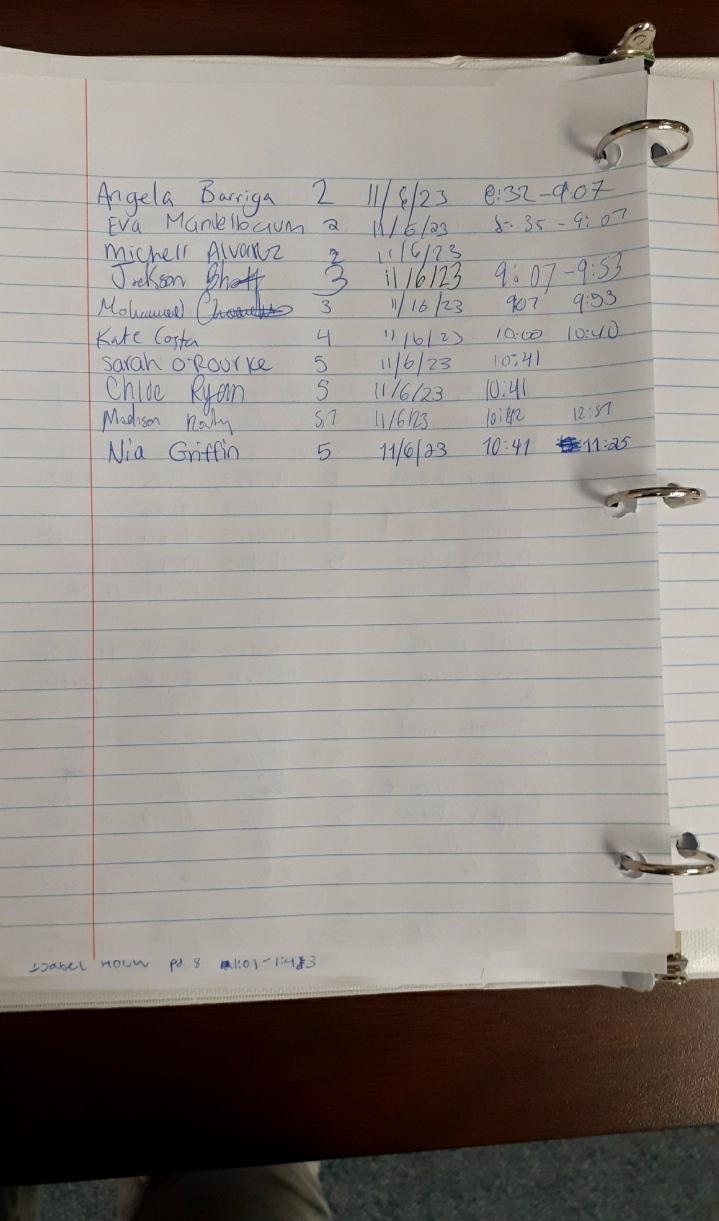 Angela Barriga 2 11/6/23 8:32-9:07
Eva Mandelbaum 2 11/6/23 8:35-9:07
Michell Alvarez 2 11/6/23
Jackson 3 11/6/23 9:07-9:53
Mohamed 3 11/16/23 907 9:53
Kate Costa 4 11/6/23 10:00 10:40
Sarah O'Rourke 5 11/6/23 10:41
Chloe Ryan 5 11/6/23 10:41
Madison 5,7 11/6/23 10:42 12:57
Nia Griffin 5 11/6/23 10:41 11:25
Isabel pd 8 1:01-1:43